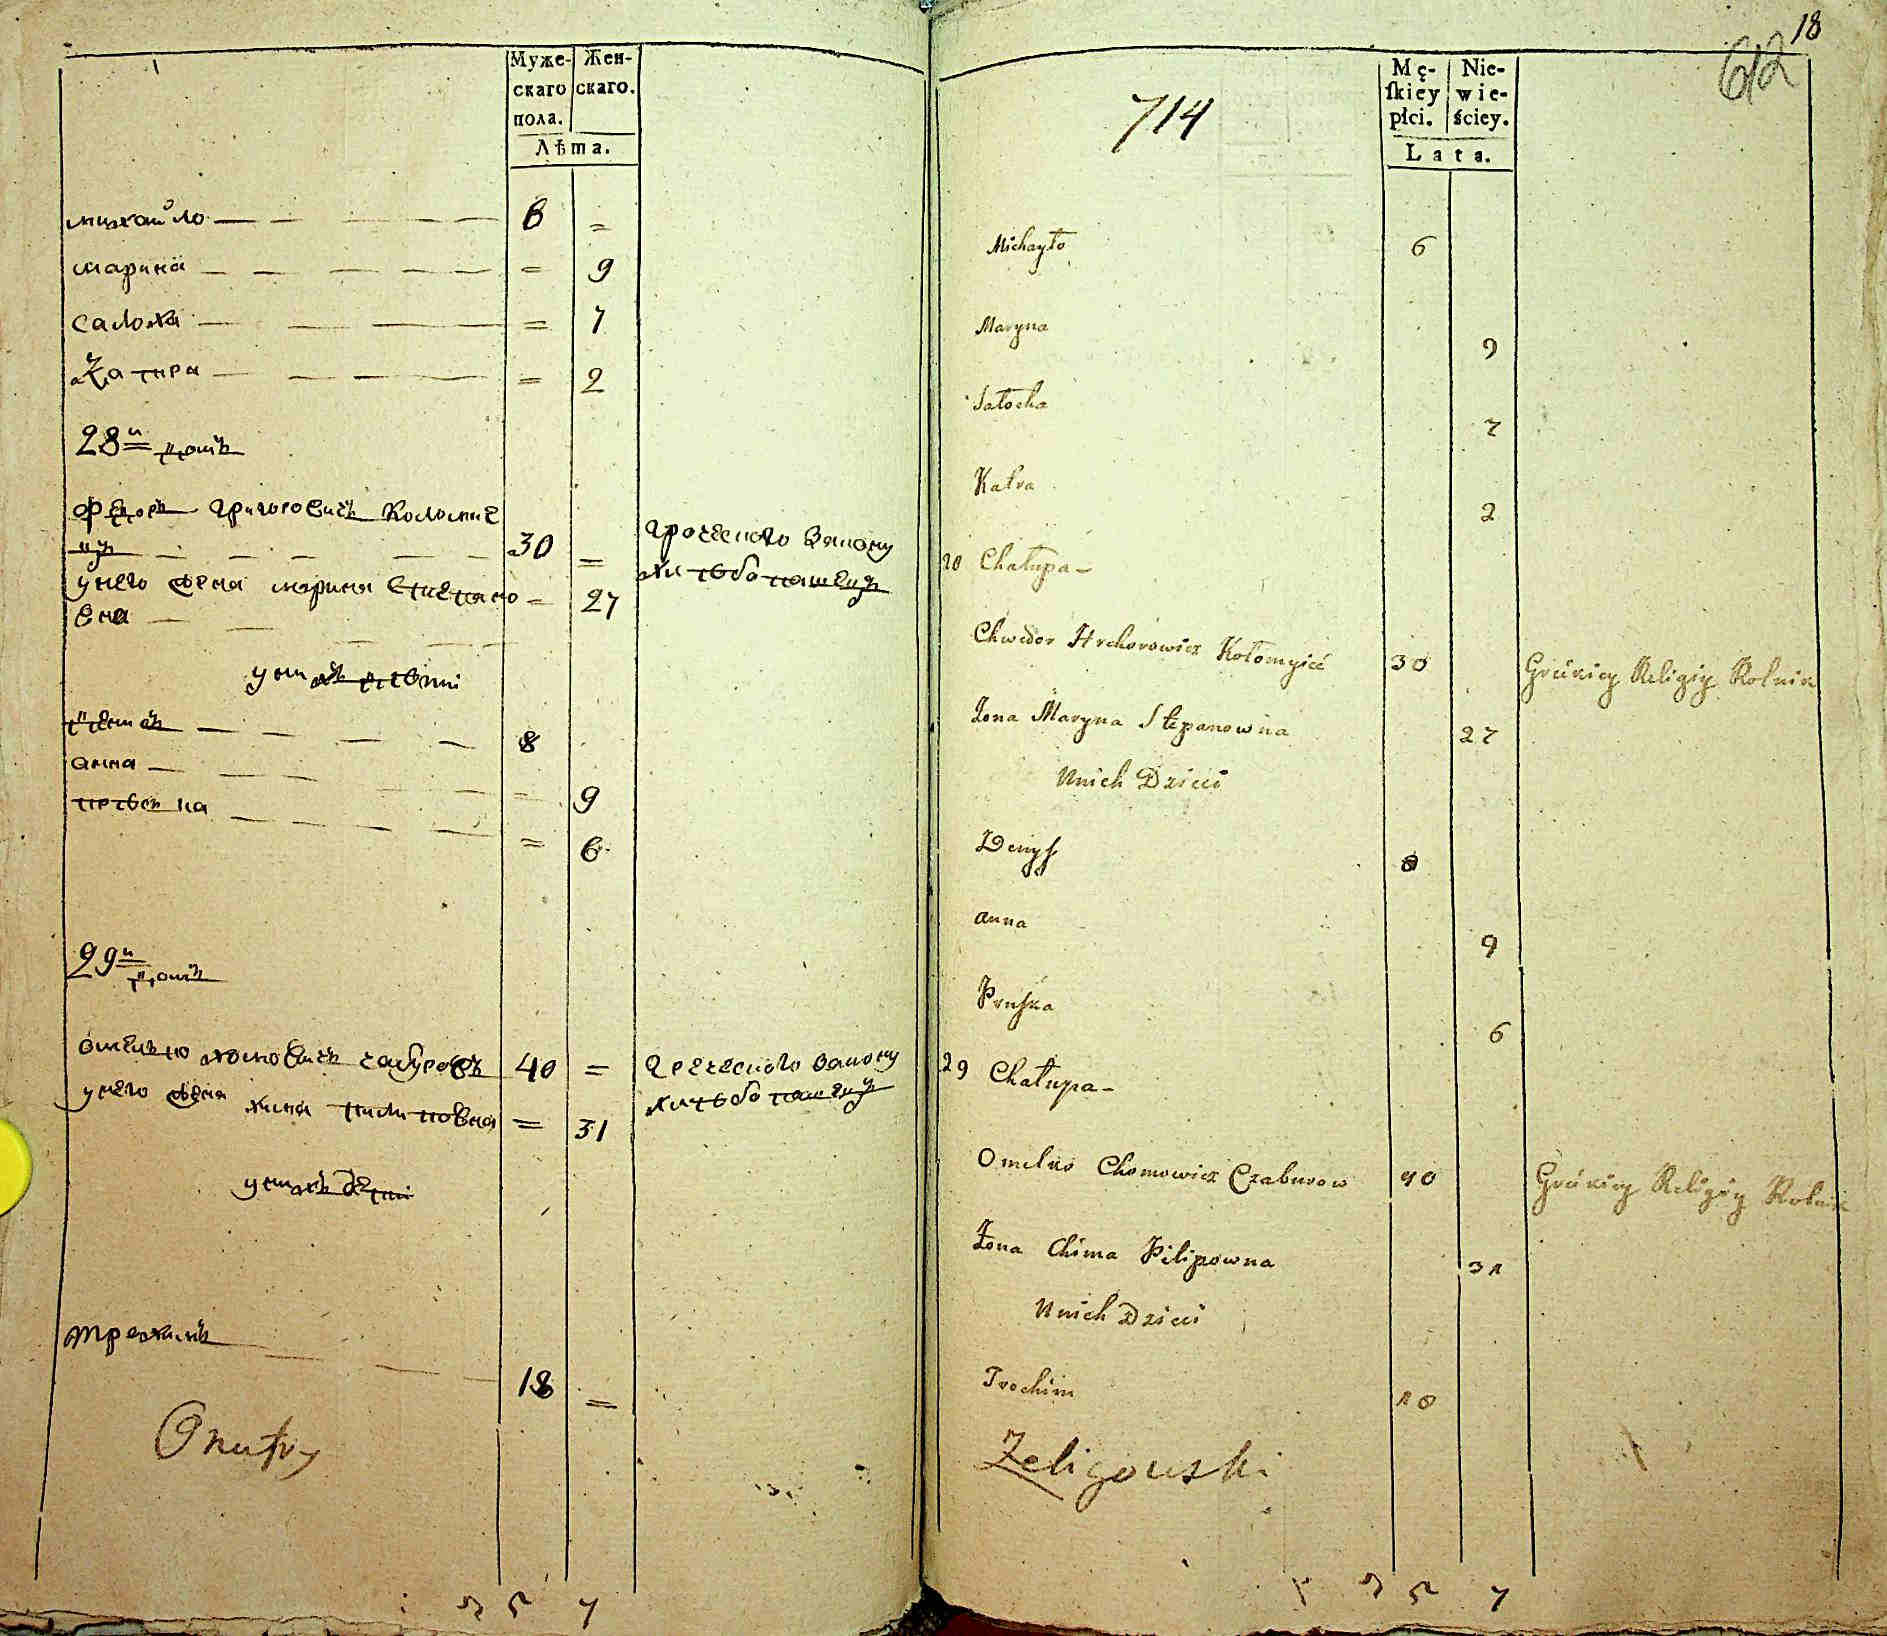 Муже-
скаго
пола.
Жен-
скаго.
Лѣта.
михайло 6 =
марина = 9
салоха = 7
катра = 2
28й домъ
Федоръ григоровичъ коломие
цъ 30 =
греческого закону
хлѣбопашецъ
у него жена марина степано = 27
вна
у нихъ дѣти
денисъ 8
анна 9
= 6
29й домъ
омелько хомовичъ чабуровъ 40 =
греческого закону
хлѣбопашецъ
у него жена хима пилиповна = 31
у нихъ дѣти
трохимъ
18 =
18
612
714
Mę-
ſkiey
płci.
Nie-
wie-
ściey.
Lata.
Michayło 6
Maryna 9
Sałocha 7
Katra 2
28 Chałupa
Chwedor Hrehorowicz Kołomyiec 30 Gréckiey Religiy Rolnik
Żona Maryna Stepanowna 27
U nich Dzieci
Denys 8
Anna 9
Pruska 6
29 Chałupa
Omelko Chomowicz Czaburow 40 Gréckiey Religiy Rolnik
Żona Chima Pilipowna 31
U nich Dzieci
Trochim 18
Zeligowski